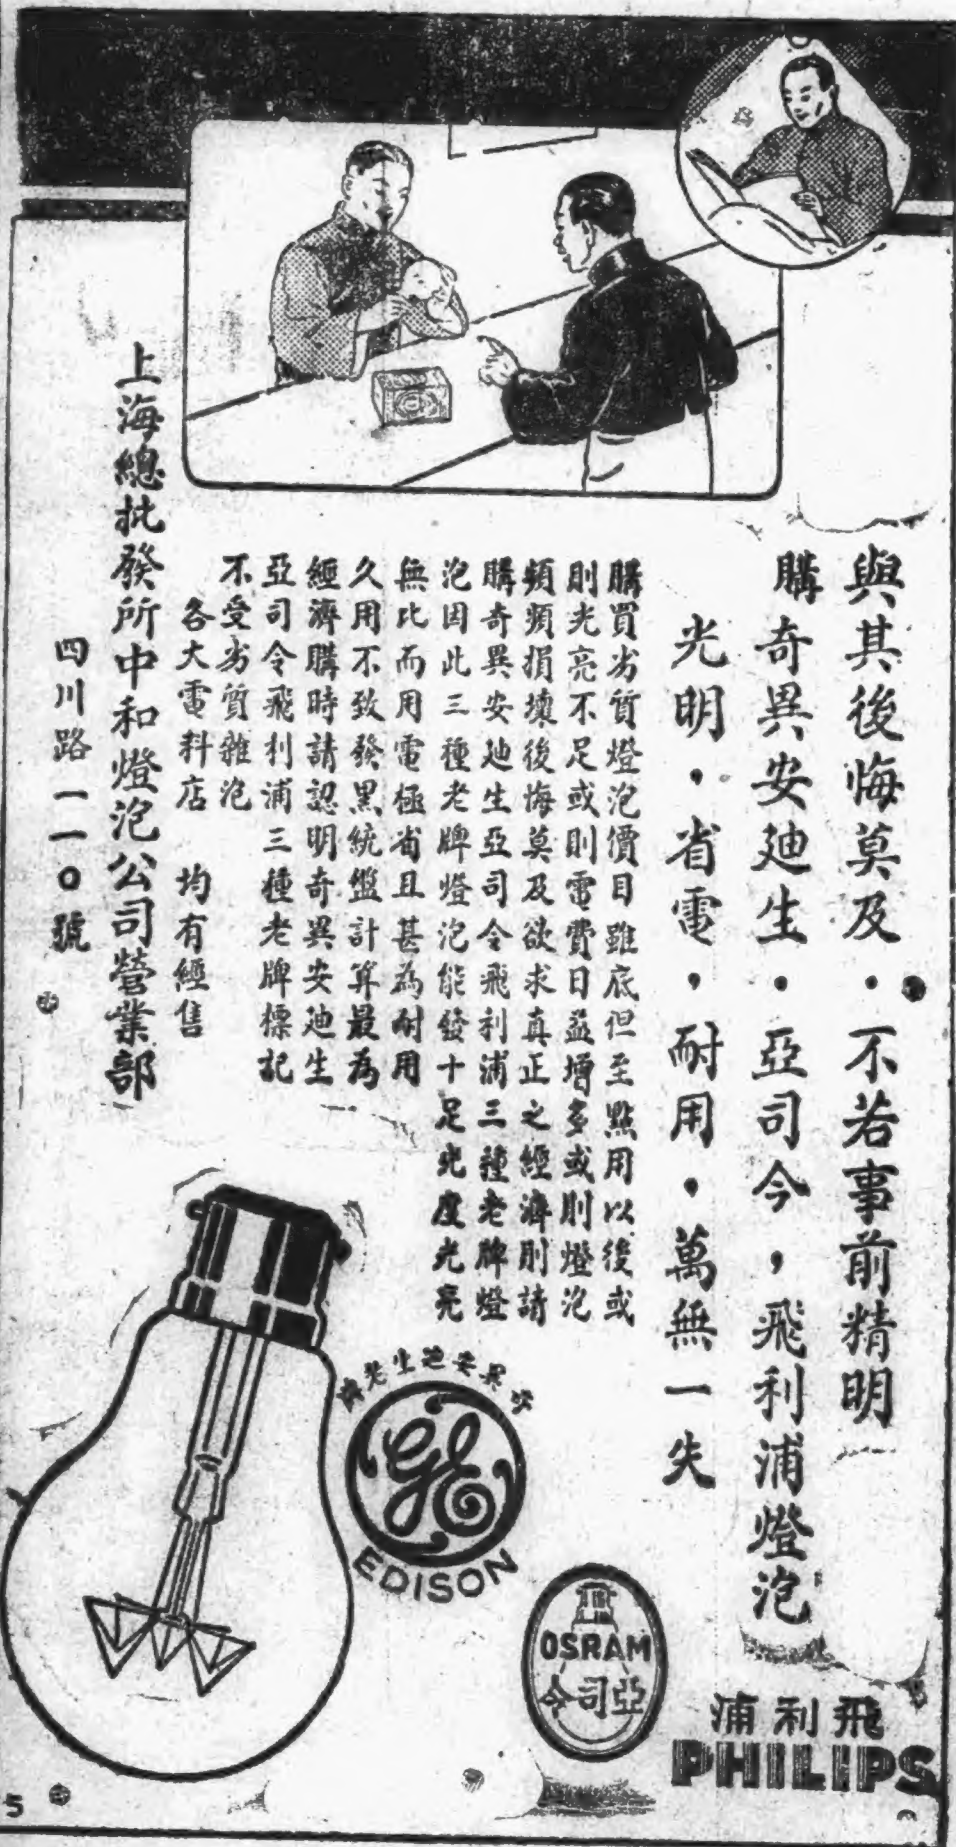 與其後悔莫及・不若事前精明
購奇異安廸生・亞司令，飛利浦燈泡
光明，省電，耐用，萬無一失
購買劣質燈泡價目雖底但至點用以後或
則光亮不足或則電費日益增多或則燈泡
頻頻損壞後悔莫及欲求真正之經濟則請
購奇異安廸生亞司令飛利浦三種老牌燈
泡因此三種老牌燈泡能發十足光度光亮
無比而用電極省且甚為耐用
久用不致發黑統盤計算最為
經濟購時請認明奇異安廸生
亞司令飛利浦三種老牌標記
不受劣質雜泡
各大電料店 均有經售
上海總批發所中和燈泡公司營業部
四川路一一〇號
奇異安廸生老牌
GE
EDISON
OSRAM
亞司令
飛利浦
PHILIPS
5